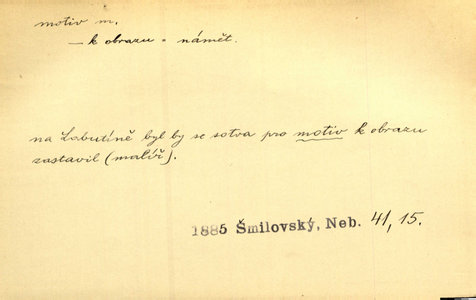 motiv m.
— k obrazu = námět.
na Labutíně byl by se sotva pro motiv k obrazu
zastavil (malíř).
1885 Šmilovský, Neb. 41, 15.